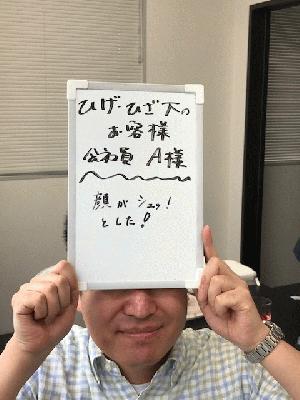 ひげ・ひざ下の
お客様
公務員 A様
顔がシュッ!
とした!